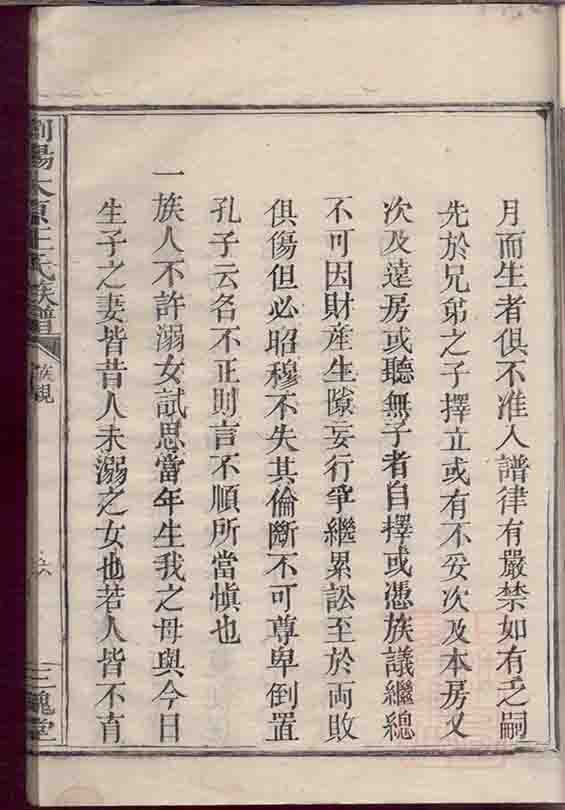 月而生者俱不准入譜律有嚴禁如有乏嗣
先於兄弟之子擇立或有不妥次及本房又
次及遠房或聽無子者自擇或憑族議繼總
不可因財產生隙妄行爭繼累訟至於両敗
俱傷但必昭穆不失其倫斷不可尊卑倒置
孔子云名不正則言不順所當慎也
一族人不許溺女試思當年生我之母與今日
生子之妻皆昔人未溺之女也若人皆不育
瀏陽太原王氏族譜
族規
三槐堂